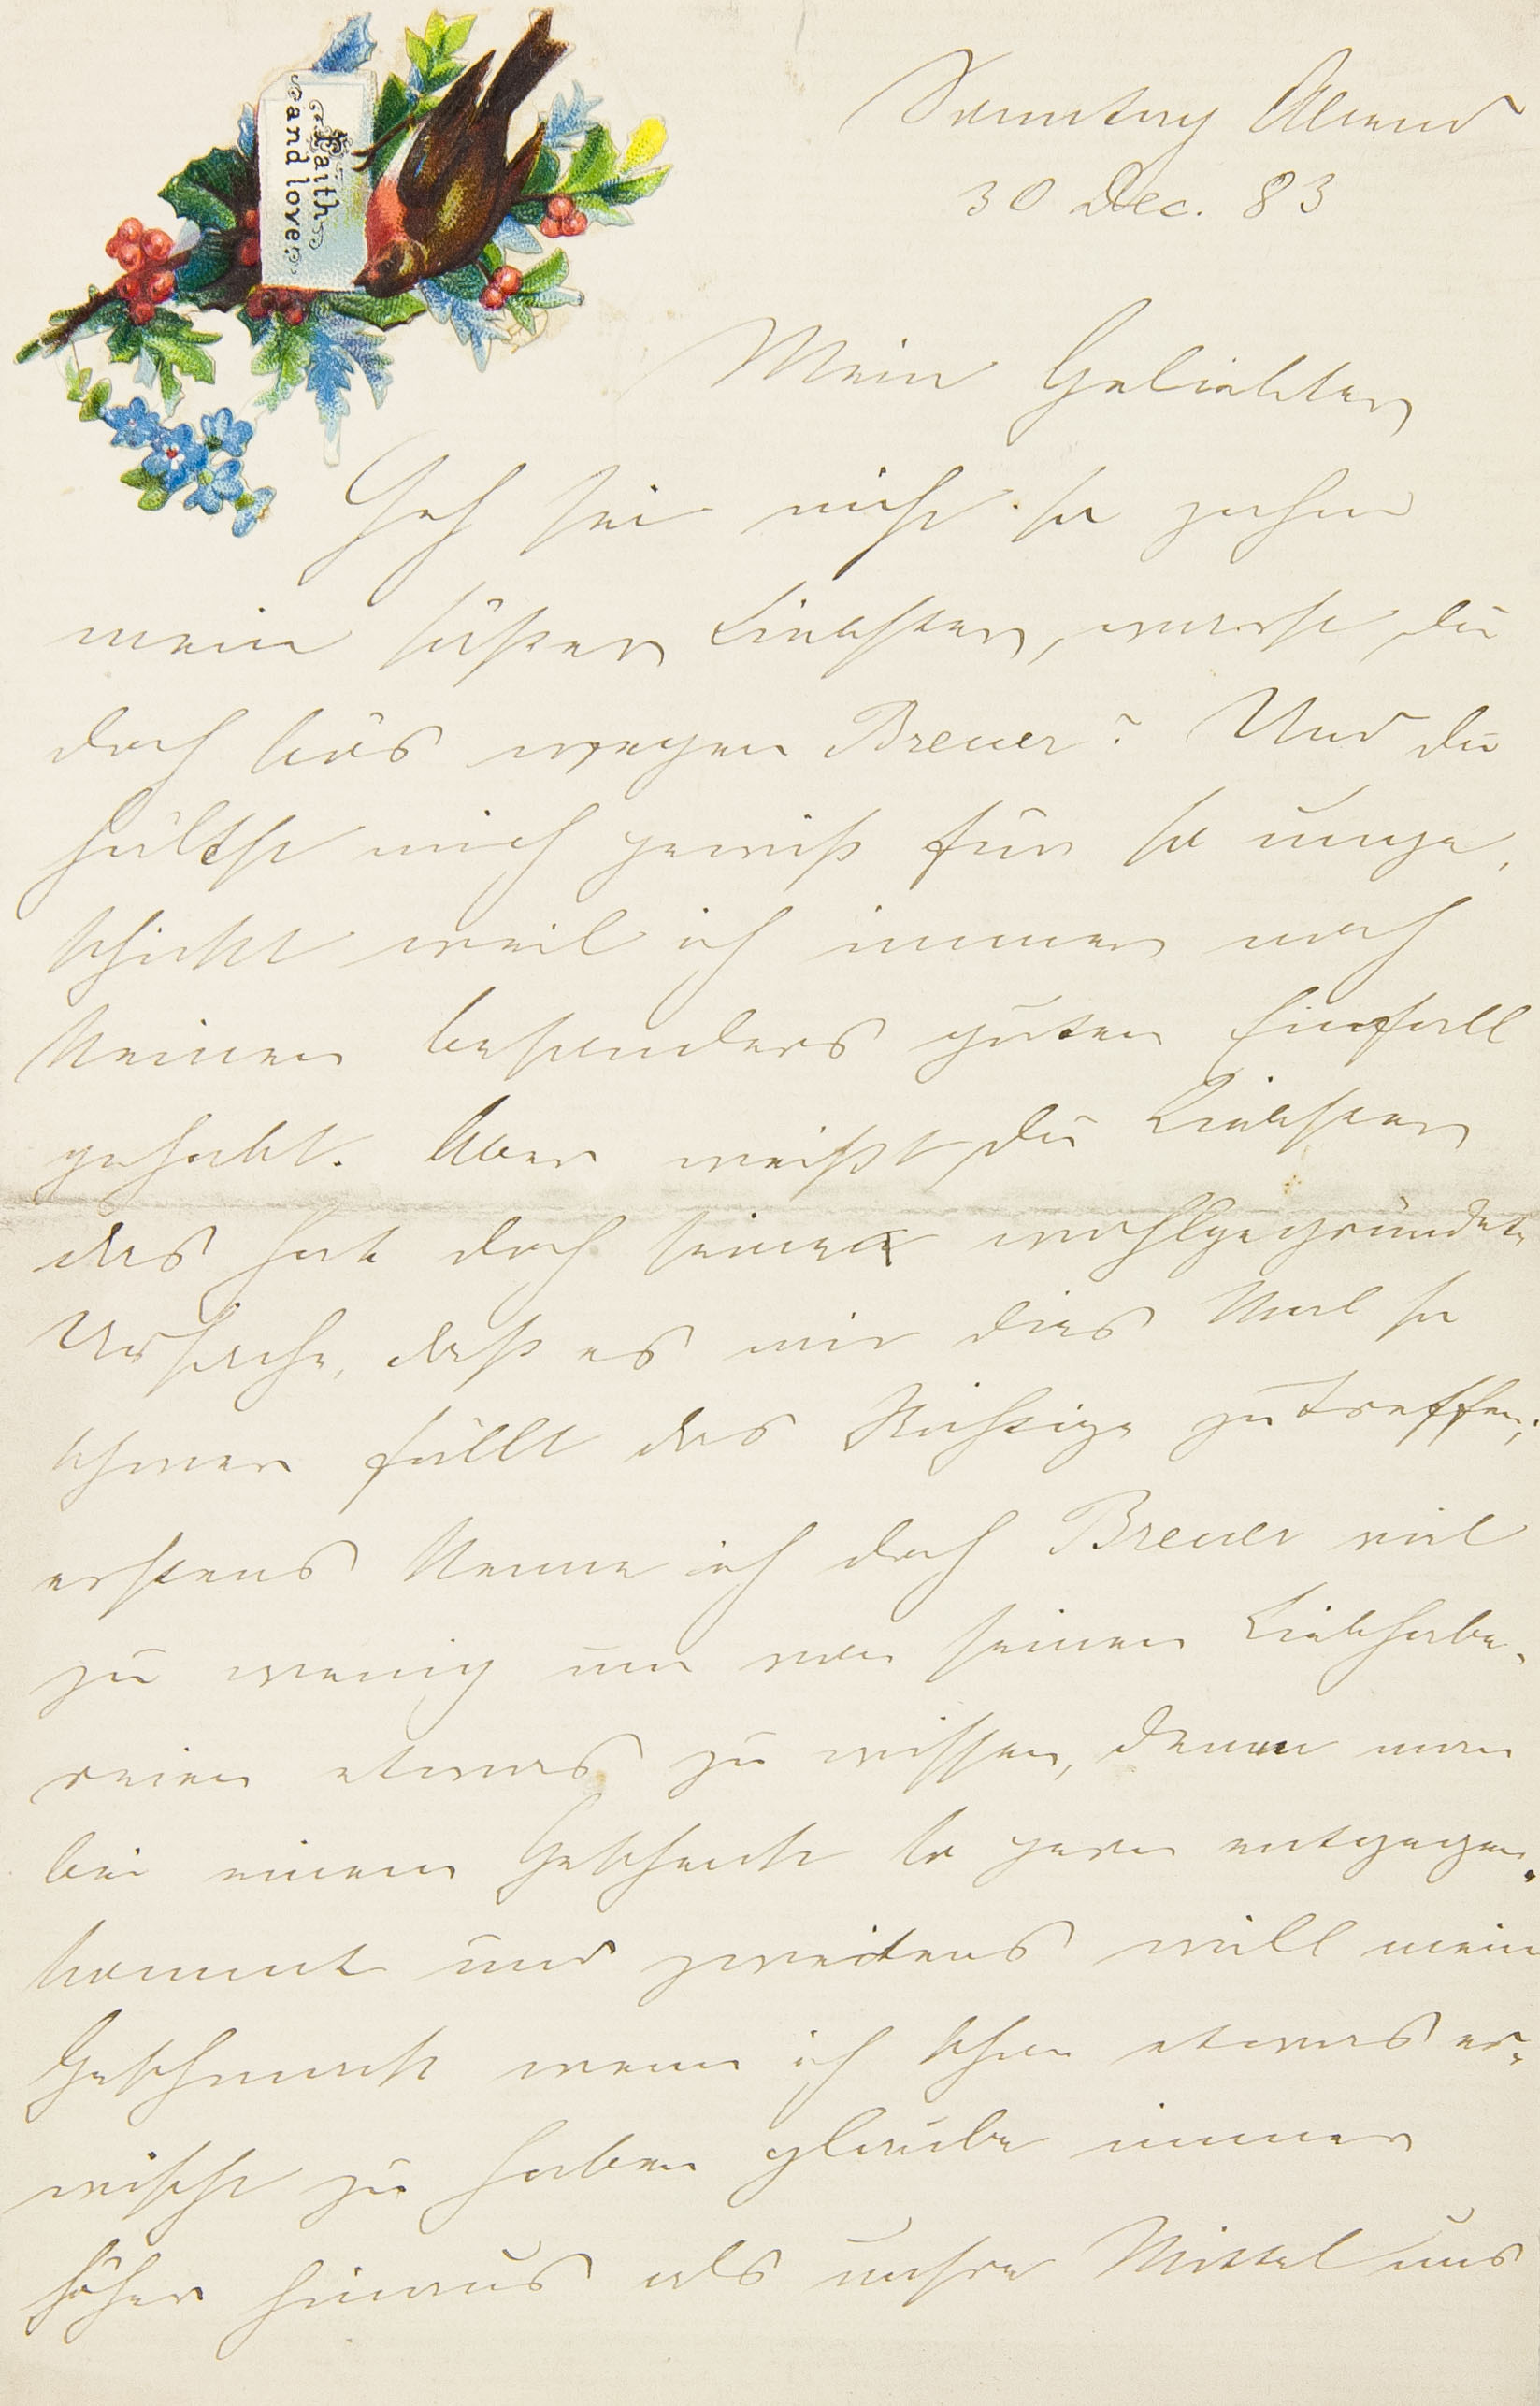 Faith
and love.
Sonntag Abend
30 Dec. 83
Mein Geliebter
Geh sei nicht so
mein süßer Liebster, warst du
doch bös wegen Breuer? Und du
hältst mich gewiß für so unge-
schickt weil ich immer noch
keinen besonders guten Einfall
gehabt. Aber weißt du Liebster
das hat doch seine wohlgegründete
Ursache, daß es mir dies Mal so
schwer fällt das Richtige zu treffen,
erstens kenne ich doch Breuer viel
zu wenig um von seinen Liebhabe-
reien etwas zu wissen, denen man
bei einem Geschenk so gern entgegen-
kommt und zweitens will mein
Geschmack wenn ich schon etwas er-
wischt zu haben glaube immer
höher hinaus als unsre Mittel uns